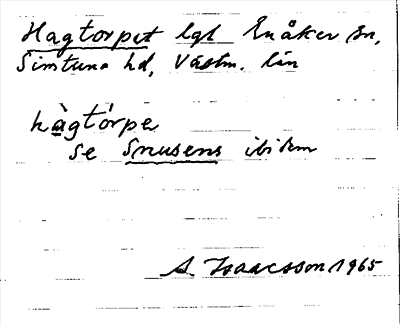 Hagtorpet lgt Enåker sn,
Simtuna hd, Västm. län
hàgtórpe
se Snusens ibidem
A. Isaacsson 1965